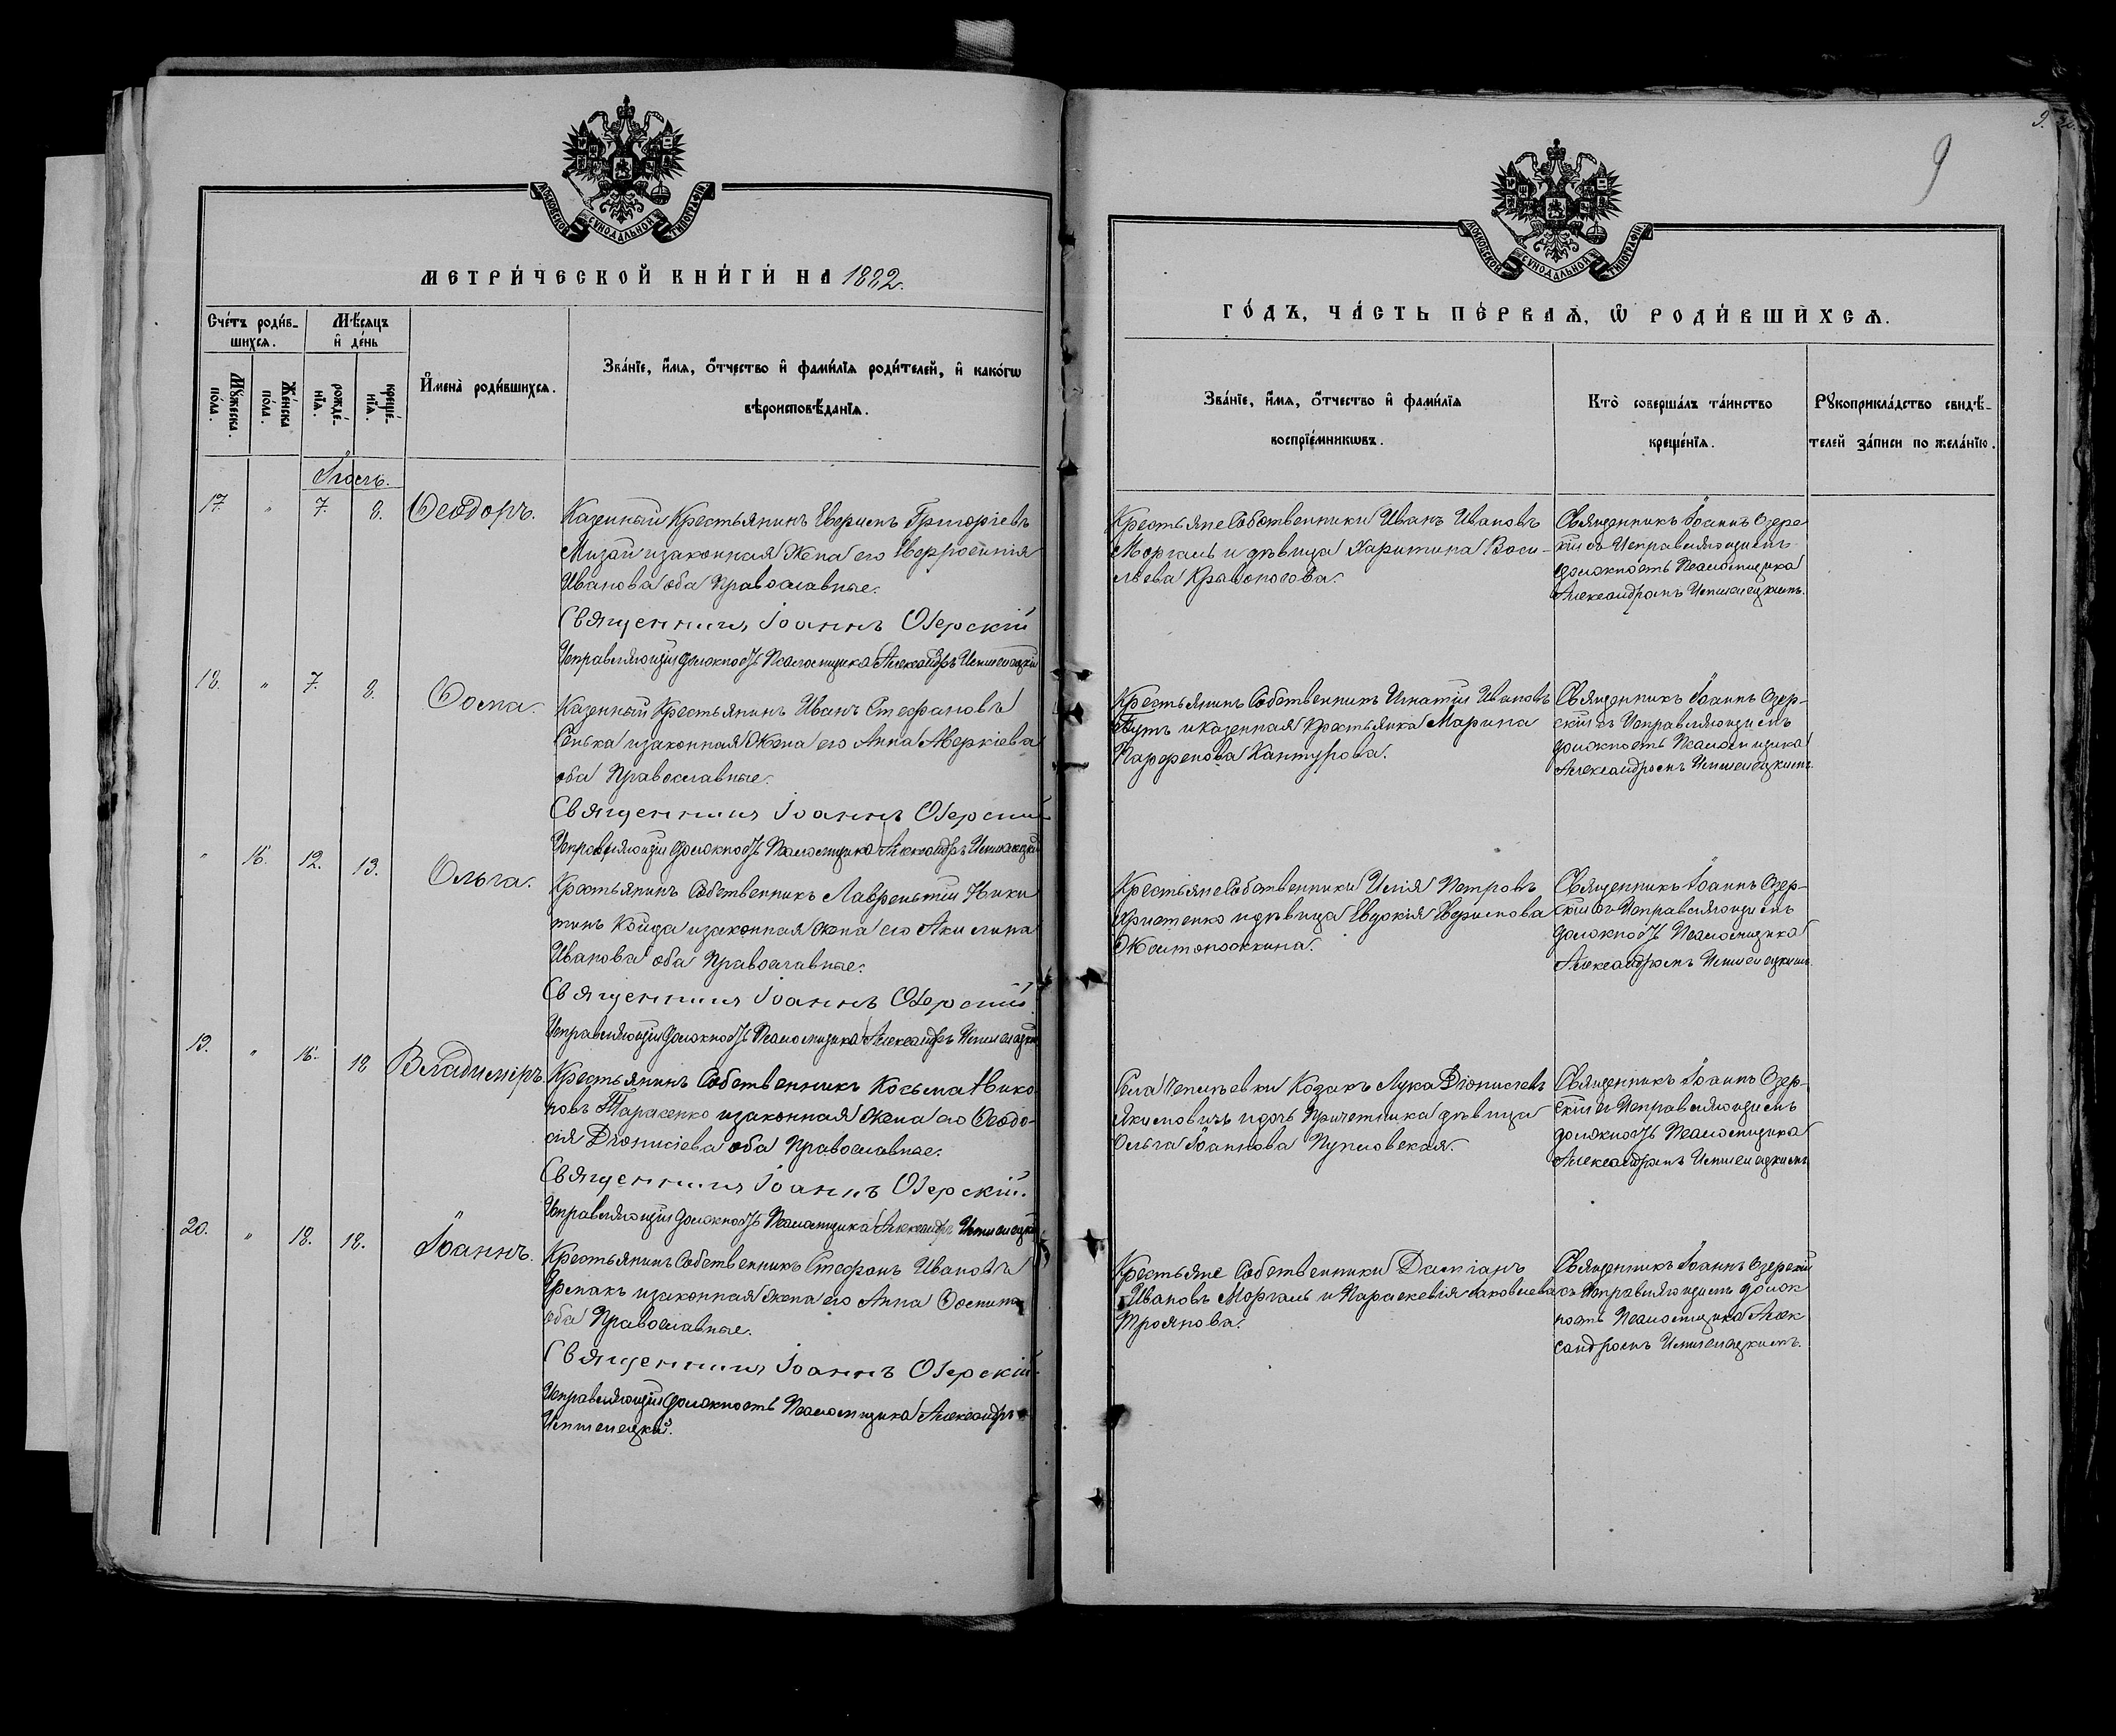 МОСКОВСКОЙ СѴНОДАЛЬНОЙ ТИПОГРАФІИ
МЕТРИ́ЧЕСКОЙ КНИ́ГИ НА 1882.
Сче́тъ роди́в-
шихся.
Мѣ́сяцъ
и҆ де́нь
Мꙋ́жеска
по́ла.
Же́нска
по́ла.
рожде́-
нїя.
креще́-
нїя.
И҆мена̀ роди́вшихся.
Зва́нїе, и҆́мя, ѻ҆́тчество и҆ фами́лїя роди́телей, и҆ како́гѡ
вѣроисповѣ́данїя.
Іюль.
17. " 7. 8. Ѳеодоръ.
Казенный Крестьянинъ Григоріевъ
и законная жена его Евфросинія
Иванова оба Православные.
Священникъ Іоаннъ Озерскій
Исправляющій должность Псаломщика Александръ
18. " 7. 8. Ѳома.
Казенный Крестьянинъ Иванъ Стефановъ
и законная жена его Анна Аверкіева
оба Православные.
Священникъ Іоаннъ Озерскій
Исправляющій должность Псаломщика Александръ
" 16. 12. 13. Ольга.
Крестьянинъ Собственникъ Лаврентій Ники
тинъ Койда и законная жена его Акилина
Иванова оба Православные.
Священникъ Іоаннъ Озерскій
Исправляющій должность Псаломщика Александръ
19. " 16. 18 Владиміръ.
Крестьянинъ Собственникъ Косьма Нико
новъ Тарасенко и законная жена его Ѳеодо-
сія Діонисіева оба Православные.
Священникъ Іоаннъ Озерскій.
Исправляющій должность Псаломщика Александръ
20. " 18. 18. Іоаннъ.
Крестьянинъ Собственникъ Стефанъ Ивановъ
Ермакъ и законная жена его Анна Ѳомина
оба Православные.
Священникъ Іоаннъ Озерскій
Исправляющій должность Псаломщика Александръ
9
МОСКОВСКОЙ СѴНОДАЛЬНОЙ ТИПОГРАФІИ
ГО́ДЪ, ЧА́СТЬ ПЕ́РВАЯ, Ѡ҆ РОДИ́ВШИХСЯ.
Зва́нїе, и҆́мя, ѻ҆́тчество и҆ фами́лїя
воспрїе́мникѡвъ.
Кто̀ соверша́лъ та́инство
креще́нїя.
Рꙋкоприкла́дство свидѣ́-
телей за́писи по жела́нїю.
Крестьяне Собственники Иванъ Ивановъ
Моргаль и дѣвица Харитина Васи-
льева Кривоносова.
Священникъ Іоаннъ Озерс
кій съ Исправляющимъ
должность Псаломщика
Александромъ
Крестьянинъ Собственникъ Игнатій Ивановъ
и Казенная Крестьянка Марина
Парфенова Кантурова.
Священникъ Іоаннъ Озер-
скій съ Исправляющимъ
должность Псаломщика
Александромъ
Крестьяне Собственники Илія Петровъ
Христенко и дѣвица Евдокія
Желтоножкина.
Священникъ Іоаннъ Озер-
скій съ Исправляющимъ
должность Псаломщика
Александромъ
Села Козакъ Лука Діонисіевъ
Якимовичъ и дочь Причетника дѣвица
Ольга Іоаннова
Священникъ Іоаннъ Озер-
скій съ Исправляющимъ
должность Псаломщика
Александромъ
Крестьяне Собственники Даміанъ
Ивановъ Моргаль и Параскевія Яковлева
Троянова.
Священникъ Іоаннъ Озерскій
съ Исправляющимъ долж
ность Псаломщика Алек
сандромъ